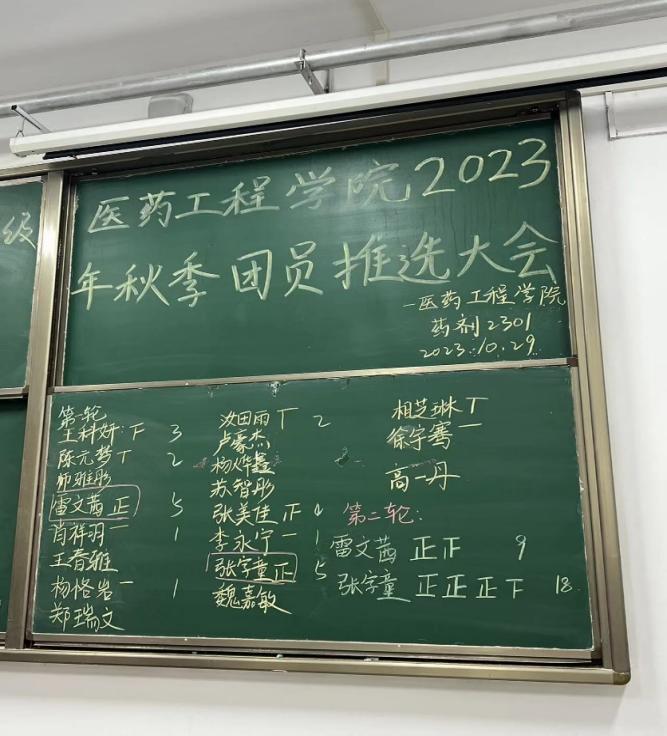 级
医药工程学院2023
年秋季团员推选大会
一医药工程学院
药剂2301
2023.10.29
第一轮
王科妍:下 3
陈元梦丅 2
师雅彤
雷文茜正 5
肖祥羽一 1
王春雅
杨恪岩一 1
郑瑞文
汝田雨丅 2
卢豪杰
杨烨鑫
苏智彤
张美佳正 4
李永宁一 1
张字童正 5
魏嘉敏
相芝琳丅
徐宇骞一
高一丹
第二轮:
雷文茜 正正 9
张字童 正正正下 18